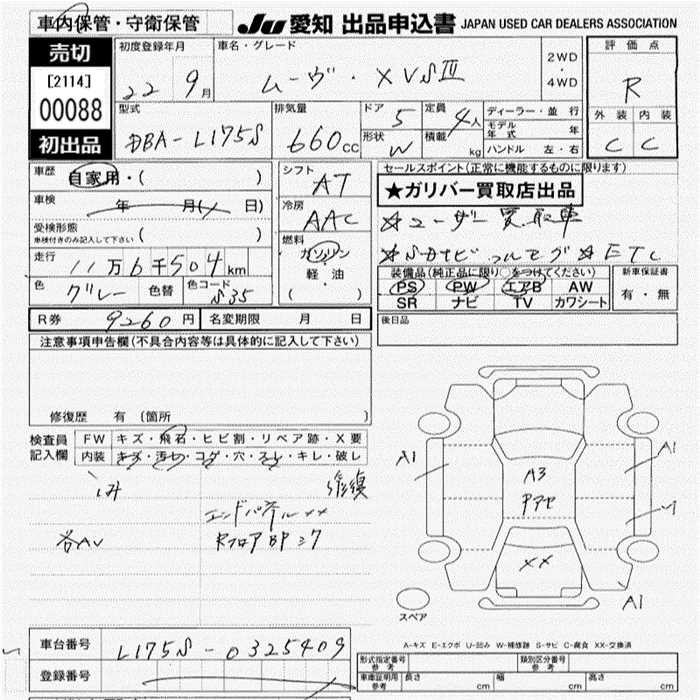 車内保管・守衛保管
JU 愛知 出品申込書 JAPAN USED CAR DEALERS ASSOCIATION
売切
[2114]
00088
初出品
初度登録年月
22 9月
車名・グレード
ムーヴ・XVSⅢ
2WD
・
4WD
評価点
R
外装 内装
C C
型式
DBA-L175S
排気量
660cc
ドア 5
形状 W
定員 4人
積載 kg
ディーラー・並行
モデル年式 年
ハンドル 左・右
車歴 自家用・( )
車検 年 月( 日)
受検形態
車検付きのみ記入して下さい ( )
走行 11万6千504km
色 グレー 色替 色コード S35
シフト AT
冷房 AAC
燃料
ガソリン
・
軽・油
( )
セールスポイント(正常に機能するものに限ります)
★ガリバー買取店出品
☆ユーザー買取車
☆SDナビ フルセグ ☆ETC
装備品(純正品に限り○をつけてください)
PS PW エアB AW
SR ナビ TV カワシート
新車保証書
有・無
R券 9260円 名変期限 月 日
後日品
注意事項申告欄(不具合内容等は具体的に記入して下さい)
修復歴 有 (箇所 )
検査員記入欄
FW キズ・飛石・ヒビ割・リペア跡・X要
内装 キズ・汚れ・コゲ・穴・スレ・キレ・破レ
シミ 修復
エンドパネル××
各AU RフロアBP
A1 A1
A3
××
A1
スペア
A-キズ E-エクボ U-凹み W-補修跡 S-サビ C-腐食 XX-交換済
車台番号 L175S-0325409
登録番号
形式指定番号参考 類別区分番号参考
車庫証明用参考 長さ cm 幅 cm 高さ cm